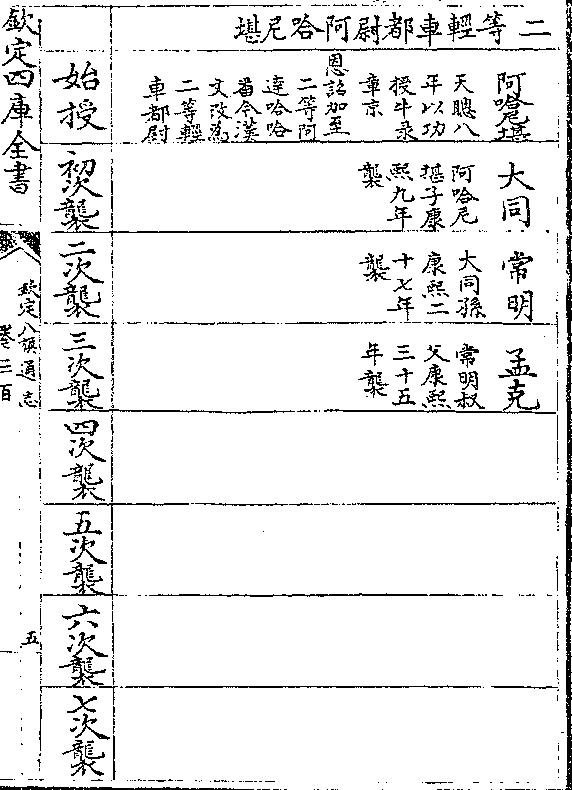 二等輕車都尉阿哈尼堪
始授
阿哈尼堪
天聰八
年以功
授牛录
章京
恩詔加至
二等阿
達哈哈
番今漢
文改為
二等輕
車都尉
初次襲
大同
阿哈尼
堪子康
熙九年
襲
二次襲
常明
大同孫
康熙二
十七年
襲
三次襲
孟克
常明叔
父康熙
三十五
年襲
四次襲
五次襲
六次襲
七次襲
欽定四庫全書
欽定八旗通志
卷三百
五